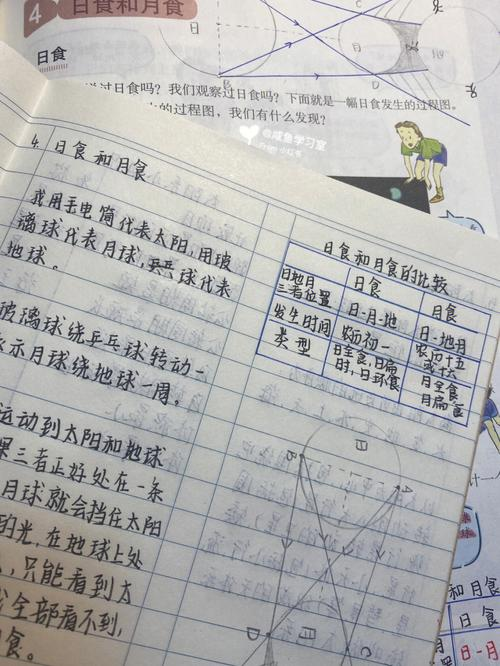 4 日食和月食
日食
过日食吗？我们观察过日食吗？下面就是一幅日食发生的过程图。
的过程图，我们有什么发现？
@咸鱼学习室
From 小红书
4. 日食和月食
我用手电筒代表太阳，用玻
璃球代表月球，乒乓球代表
地球。
玻璃球绕乒乓球转动一
示月球绕地球一周。
运动到太阳和地球
果三者正好处在一条
月球就会挡住太阳
的光，在地球上处
，只能看到太
全部看不到，
食。
日食和月食的比较
日地月三者位置 日食 月食
日-月-地 日-地-月
发生时间 农历初一 农历十五或十六
类型 日全食，日偏食，日环食 月全食 月偏食
日
B
A
月
D
C
日
C
B
D
月
和月食
日食
日-月-